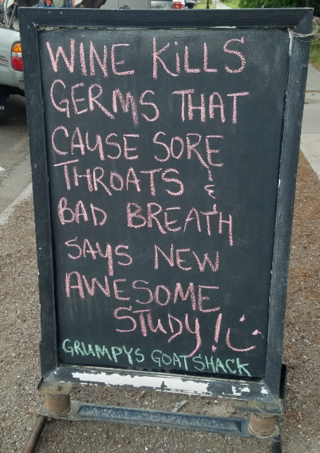 WINE KILLS
GERMS THAT
CAUSE SORE
THROATS &
BAD BREATH
SAYS NEW
AWESOME
STUDY!
GRUMPYS GOAT SHACK